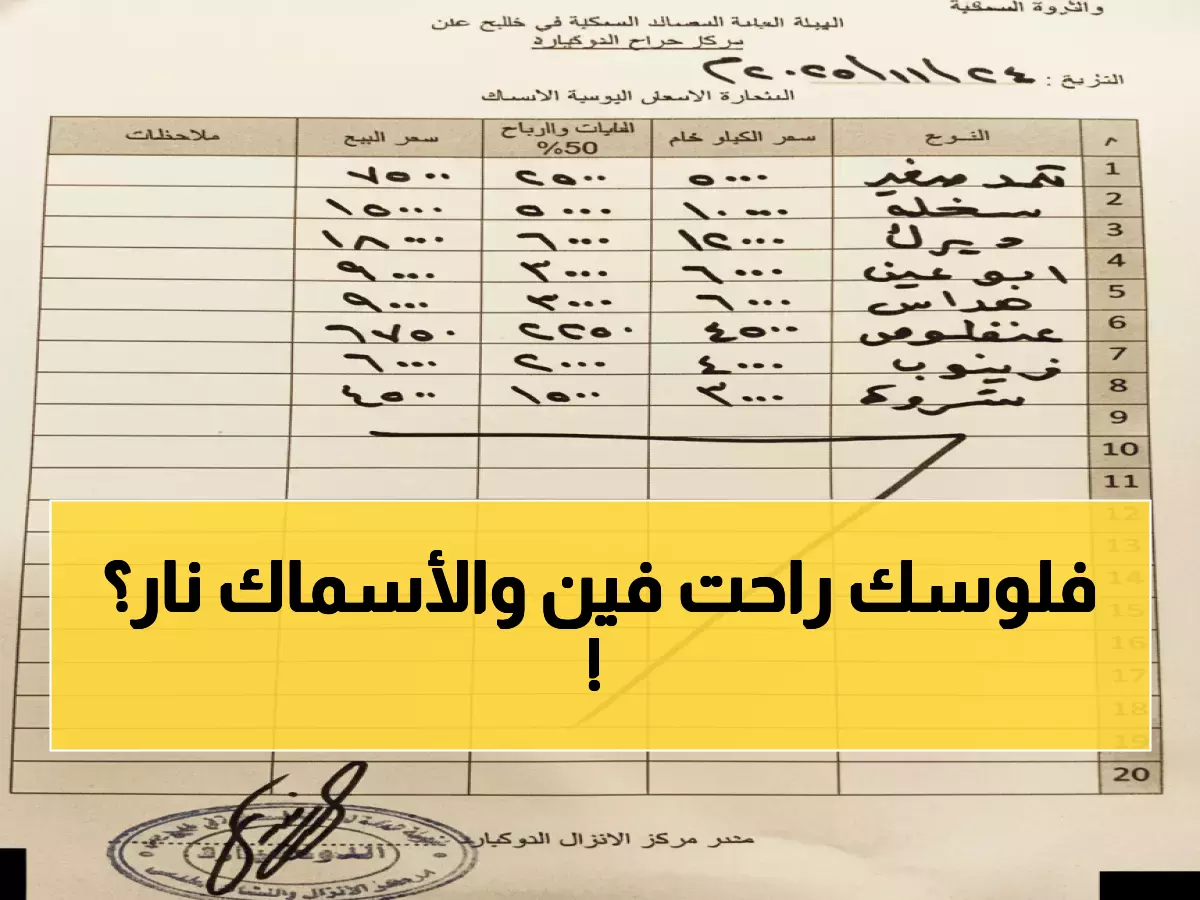 والثروة السمكية
الهيئة العامة للمصائد السمكية في خليج عدن
مركز حراج الدوكيارد
التاريخ : ٢٤/١١/٢٠٢٥م
الاسعار اليومية الاسماك
م النوع سعر الكيلو خام الفايات والارباح 50% سعر البيع ملاحظات
1 ثمد صغير ٥٠٠٠ ٢٥٠٠ ٧٥٠٠
2 سخله ١٠٠٠٠ ٥٠٠٠ ١٥٠٠٠
3 ديرك ١٢٠٠٠ ٦٠٠٠ ١٨٠٠٠
4 ابو عين ٦٠٠٠ ٣٠٠٠ ٩٠٠٠
5 هداس ٦٠٠٠ ٣٠٠٠ ٩٠٠٠
6 عنفلوص ٤٥٠٠ ٢٢٥٠ ٦٧٥٠
7 زينوب ٤٠٠٠ ٢٠٠٠ ٦٠٠٠
8 شروة ٣٠٠٠ ١٥٠٠ ٤٥٠٠
9
10
11
12
13
فلوسك راحت فين والأسماك نار؟
!
14
15
16
17
18
19
20
مدير مركز الانزال الدوكيارد